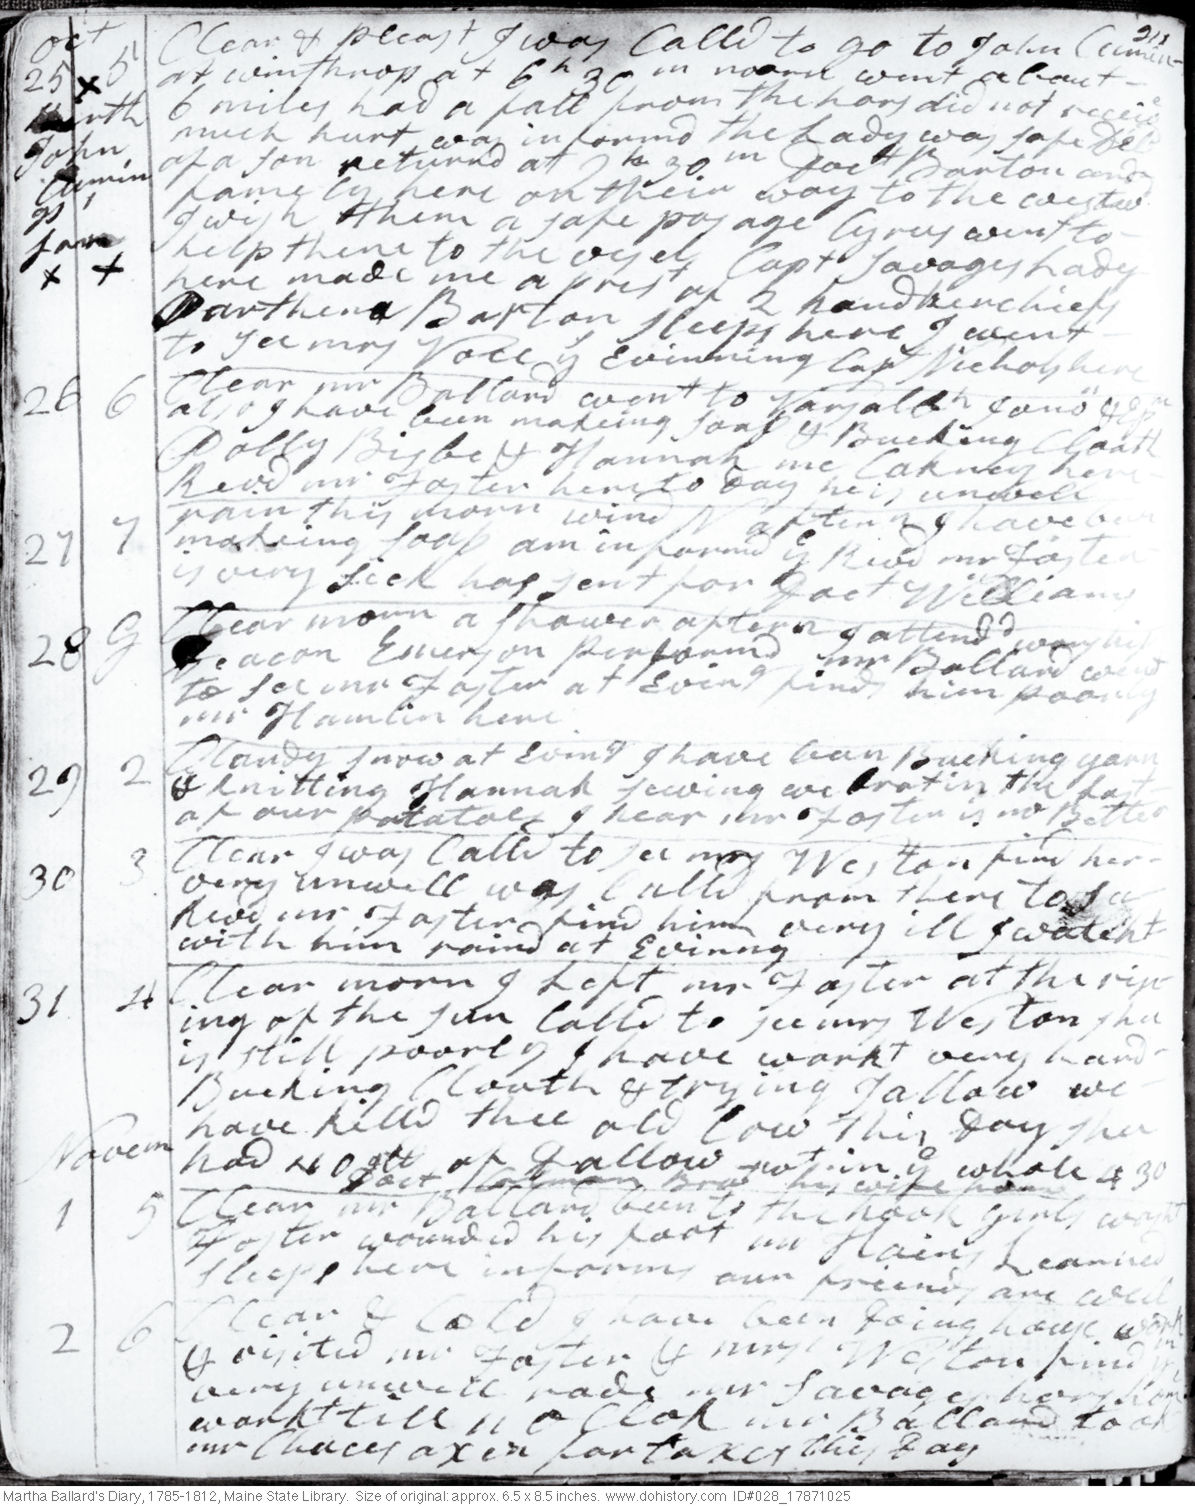 oct
25 x 5 Clear & pleast I was Calld to go to John Cumin
at winthrop at 6 h 30 m morn went about
Birth 6 miles had a fall from the hors did not receiv
John much hurt was informd the Lady was safe Deld
Cumin of a son returnd at 9 h 30 m Doct Barton and
gs, famely here on their way to the westw
I wish them a safe pasage Cyrus went to
son help them to the vesel Capt Savages Lady
x + here made me a prest of 2 handkerchiefs
Parthena Barton sleeps here I went
to see mrs Vose ys Evinning Cap Nichols here
26 6 Clear mr Ballard went to
also I have been makeing soap & Bucking Cloath
Polly Bigbe & Hannah mc Cakney here
Revd mr Foster here to Day he is unwell
27 7 rain this morn wind N aftern I have been
makeing soap am informd ys Revd mr Foster
is very sick has sent for Doct Williams
28 G Clear morn a shower aftern I attendd worship
Deacon Emerson Performd mr Ballard went
to see mr Foster at Evengn finds him poorly
mr Hamlin here
29 2 Cloudy snow at Evingn I have been Bucking yarn
& knitting Hannah sewing we brot in the last
of our potatoes I hear mr Foster is no Better
30 3 Clear I was Calld to see mrs Weston find her
very unwell was Calld from there to se
Revd mr Foster find him very ill I watcht
with him raind at Evinng
31 4 Clear morn I Left mr Foster at the ris
ing of the sun Calld to see mrs Weston shee
is still poorly I have workt very hard
Bucking Clouth & trying Tallow we
have killd thee old Cow this Day shee
Novem had 40 lb of Tallow wt in ye whole 430
Doct Coleman Brot his wife home
1 5 Clear mr Ballard been to the hook Girls washt
Foster wounded his foot mr Hains Learned
sleeps here informs our friends are well
2 6 Clear & Cold I have been Doing house work
& visited mr Foster & mrs Weston find him
very unwell rode mr Savages hors home
workt till 11 o Clok mr Ballard took
mr Chaces oxen for taxes this Day
Martha Ballard's Diary, 1785-1812, Maine State Library. Size of original: approx. 6.5 x 8.5 inches. www.dohistory.com ID#028_17871025